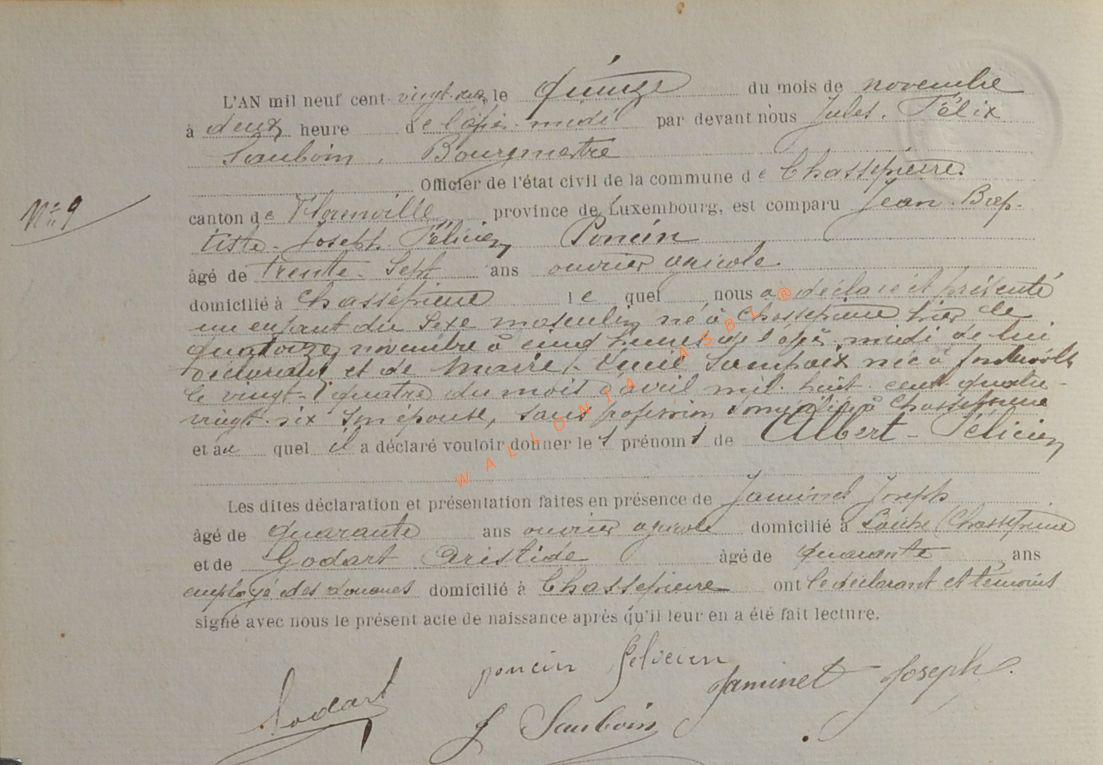 L'AN mil neuf cent vingt-deux le Quinze du mois de novembre
à deux heure de l'après-midi par devant nous Jules. Félix
Sauboin, Bourgmestre
Officier de l'état civil de la commune de Chassepierre
canton de Florenville province de Luxembourg, est comparu Jean-Bap-
N° 9
tiste-Joseph Félicien Poncin
âgé de trente-sept ans ouvrier agricole
domicilié à Chassepierre le quel nous a déclaré et présenté
un enfant du sexe masculin né à Chassepierre hier le
quatorze novembre à cinq heures de l'après midi de lui
déclarant et de Marie-Lucie née à
le vingt-quatre du mois d'avril mil huit cent quatre-
vingt-six son épouse, sans profession domiciliée à Chassepierre
et au quel il a déclaré vouloir donner le s prénom s de Albert-Félicien
Les dites déclaration et présentation faites en présence de Jaminet Joseph
âgé de quarante ans ouvrier agricole domicilié à Laiche (Chassepierre
et de Godart Aristide âgé de quarante ans
employé des douanes domicilié à Chassepierre ont le déclarant et témoins
signé avec nous le présent acte de naissance après qu'il leur en a été fait lecture.
poncin félicien
Godart Jaminet Joseph.
J Sauboin
WALLONIA ASBL @